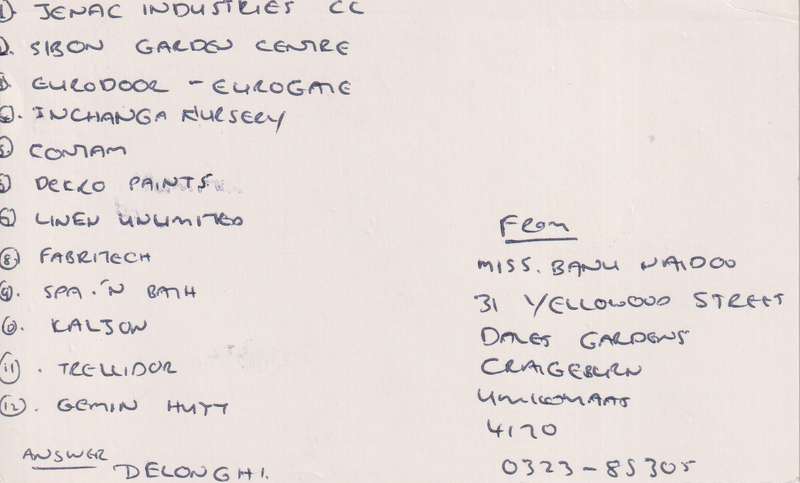 1) JENAC INDUSTRIES CC
2. SIBON GARDEN CENTRE
3. EURODOOR - EUROGATE
4. INCHANGA NURSERY
5) CONTAM
6) DEKRO PAINTS
7) LINEN UNLIMITED
8. FABRITECH
9. SPA.'N BATH
10. KALSON
11. TRELLIDOR
12. GEMIN HUYT
ANSWER DELONGHI.
FROM
MISS. BANU NAIDOO
31 YELLOWOOD STREET
DALES GARDENS
CRAIGEBURN
UMKOMAAS
4170
0323-85305